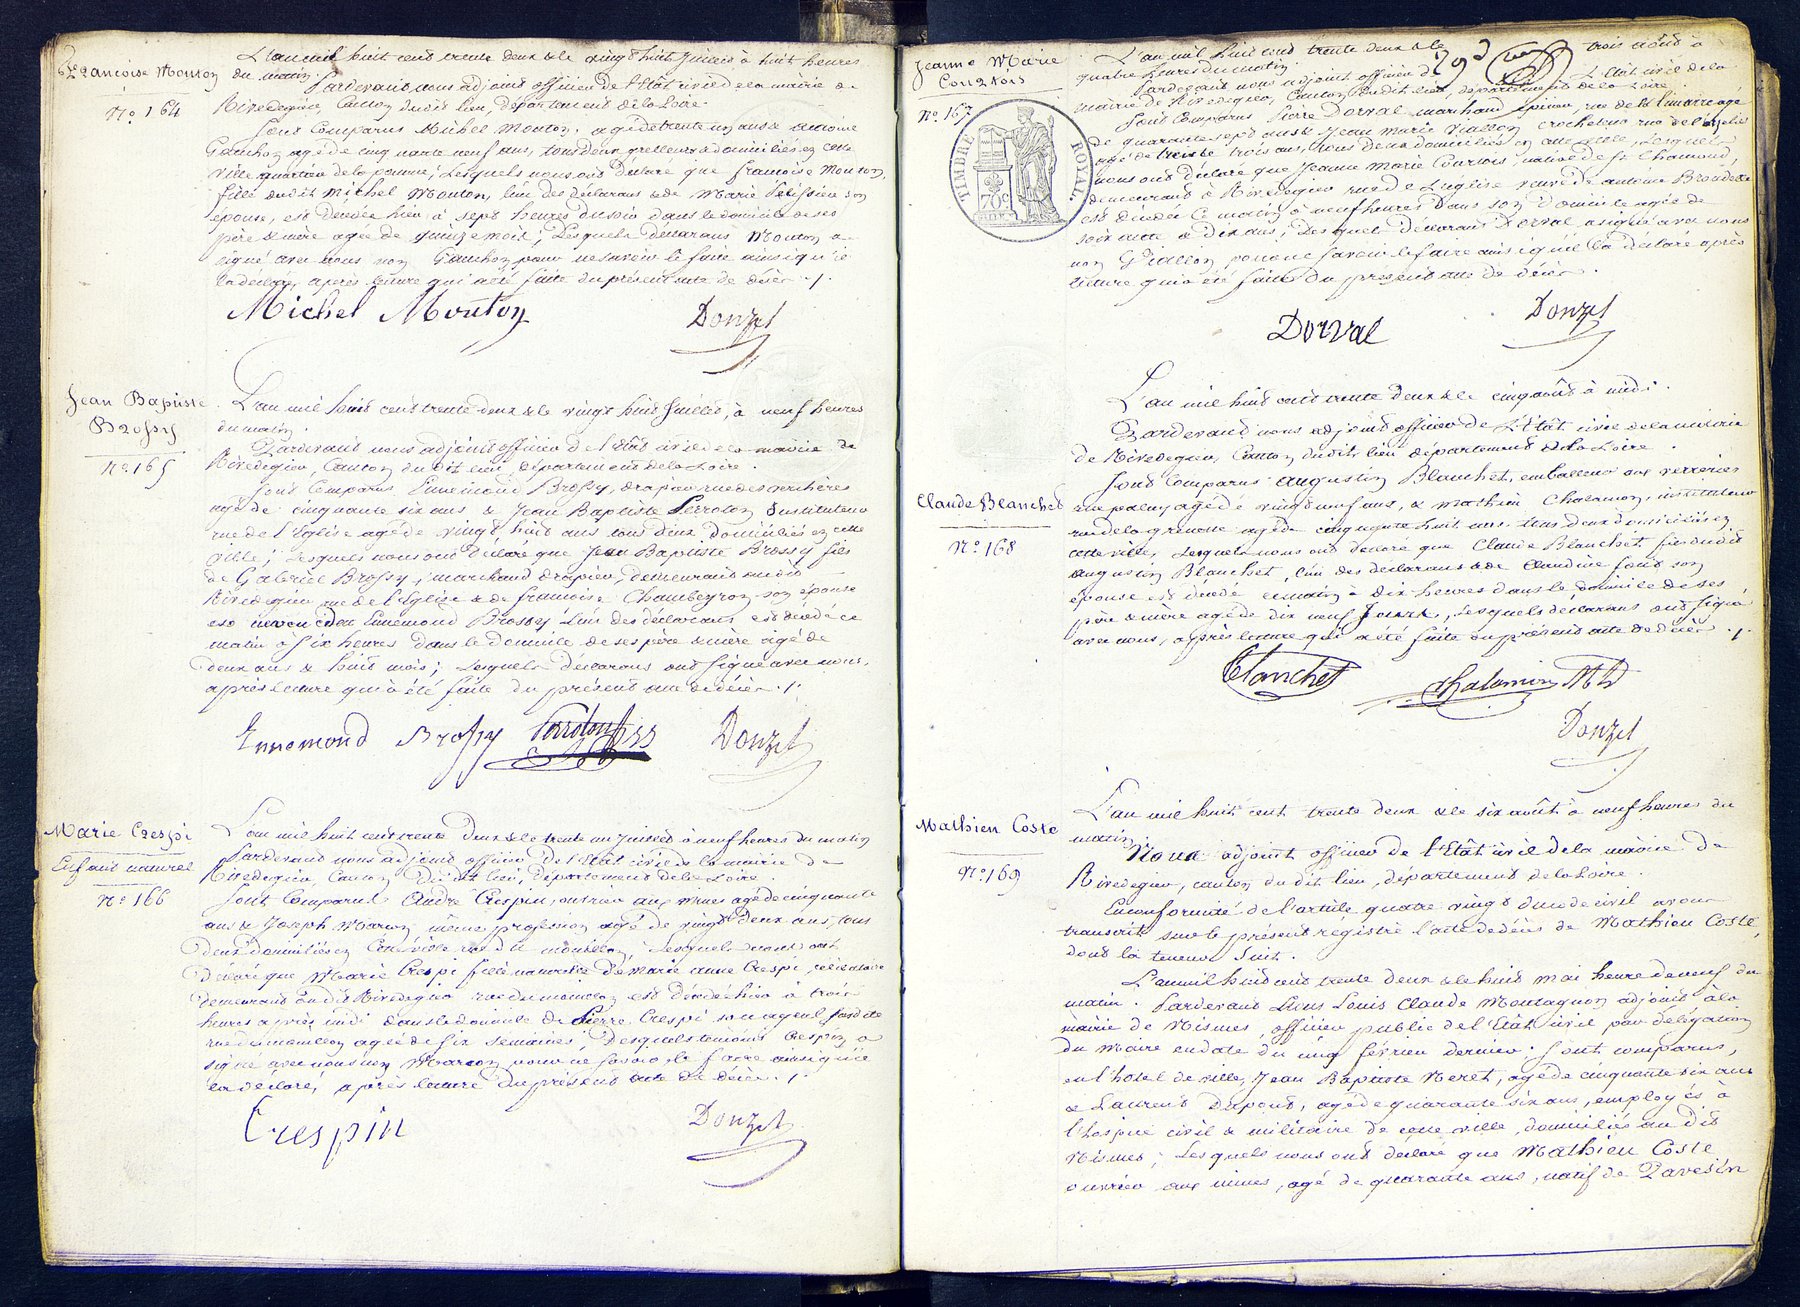 Françoise Mouton
N.o 164
L'an mil huit cent trente deux & le vingt huit Juillet à huit heures
du matin.
Pardevant nous adjoint officier de l'Etat civil de la mairie de
Rivedegier, Canton du dit lieu, département de la Loire.
Sont Comparus Michel Mouton, agé de trente un ans & antoine
Gauchon agé de cinquante neuf ans, tous deux domiciliés en cette
ville quartier de la pomme, Lesquels nous ont Déclaré que francoise Mouton,
fille du dit Michel Mouton, l'un des déclarans & de Marie Pélissier son
épouse, est décédée hier à sept heures du soir dans le domicile de ses
père & mère agée de quinze mois; Lesquels déclarans Mouton a
signé avec nous non Gauchon pour ne savoir le faire ainsi qu'il
l'a déclaré, après lecture qui a été faite du présent acte de décès ./.
Michel Mouton Donzel
Jean Baptiste
Brossy
N.o 165
L'an mil huit cent trente deux & le vingt huit Juillet, à neuf heures
du matin.
Pardevant nous adjoint officier de l'Etat civil de la mairie de
Rivedegier, Canton du dit lieu, département de la Loire.
Sont Comparus Ennemond Brossy, drapier rue des verchères
agé de cinquante six ans & Jean Baptiste Perroton Instituteur
rue de l'Eglise agé de vingt huit ans tous deux domiciliés en cette
ville; Lesquels nous ont déclaré que Jean Baptiste Brossy fils
de Gabriel Brossy, marchand drapier, demeurant au dit
Rivedegier rue de l'Eglise & de francoise Chambeyron son épouse
& neveu du Ennemond Brossy l'un des déclarans est décédé ce
matin à six heures dans le domicile de ses père & mère agé de
deux ans & huit mois; Lesquels déclarans ont signé avec nous,
après lecture qui a été faite du présent acte de décès ./.
Ennemond Brossy Perroton Donzel
Marie Crespi
Enfant naturel
N.o 166
L'an mil huit cent trente deux & le trente un Juillet à neuf heures du matin
Pardevant nous adjoint officier de l'Etat civil de la mairie de
Rivedegier, Canton du dit lieu, département de la Loire.
Sont Comparus André Crespin, ouvrier aux mines agé de cinquante
ans & Joseph Marcon même profession agé de vingt deux ans, tous
deux domiciliés en cette ville rue du mouillon; Lesquels nous ont
Déclaré que Marie Crespi fille naturelle de Marie anne Crespi, célibataire
demeurant au dit Rivedegier rue du mouillon est décédée hier à trois
heures après midi dans le domicile de Pierre Crespi son ayeul susdite
rue du mouillon agée de six semaines, Desquels témoins Crespin a
signé avec nous non Marcon pour ne savoir le faire ainsi qu'il
l'a déclaré, après lecture du présent acte de décès ./.
Crespin Donzel
293
Jeanne Marie
Courtois
N.o 167
TIMBRE ROYAL
70c
L'an mil huit cent trente deux & le trois août à
quatre heures du matin.
Pardevant nous adjoint officier de l'Etat civil de la
mairie de Rivedegier, Canton du dit lieu, département de la Loire.
Sont Comparus Pierre Dorval marchand épicier, rue de la limaire agé
de quarante sept ans & Jean Marie Viallon crocheteur rue de l'Eglise
agé de trente trois ans, tous deux domiciliés en cette ville, Lesquels
nous ont déclaré que Jeanne Marie Courtois native de St Chamond,
demeurant à Rivedegier rue de L'église veuve de antoine
est décédée ce matin à neuf heures dans son domicile agée de
soixante & dix ans; Desquels Déclarans Dorval a signé avec nous
non Viallon pour ne savoir le faire ainsi qu'il l'a déclaré après
lecture qui a été faite du présent acte de décès.
Dorval Donzel
Claude Blanchet
N.o 168
L'an mil huit cent trente deux & le cinq août à midi.
Pardevant nous adjoint officier de l'Etat civil de la mairie
de Rivedegier, Canton du dit lieu département de la Loire.
Sont Comparus augustin Blanchet, emballeur aux verreries
agé de vingt neuf ans, & Mathieu Chalamon, instituteur
rue de la grenette agé de cinquante huit ans tous deux domiciliés en
cette ville, Lesquels nous ont déclaré que Claude Blanchet, fils du dit
augustin Blanchet, l'un des déclarans & de Claudine font son
épouse est décédé ce matin à dix heures dans le domicile de ses
père & mère agé de dix neuf Jours, Lesquels déclarans ont signé
avec nous, après lecture qui a été faite du présent acte de décès ./.
Blanchet Chalamon
Donzel
Mathieu Coste
N.o 169
L'an mil huit cent trente deux & le six août à neuf heures du
matin
Nous adjoint officier de l'Etât civil de la mairie de
Rivedegier, canton du dit lieu, département de la Loire.
En conformité de l'article quatre vingt du code civil avons
transcrit sur le présent registre l'acte de décès de Mathieu Coste,
dont la teneur suit.
L'an mil huit cent trente deux & le huit mai heure de neuf du
matin. Pardevant Louis Claude Montagnon adjoint à la
mairie de Nismes, officier public de l'Etât civil par délégation
du Maire en date du cinq février dernier. Sont comparus,
en l'hotel de ville, Jean Baptiste Neret, agé de cinquante six ans
& Laurent Dupont, agé de quarante six ans, employés à
l'hospice civil & militaire de cette ville, domiciliés au dit
Nismes; Lesquels nous ont déclaré que Mathieu Coste
ouvrier aux mines, agé de quarante ans, natif de Pavesin